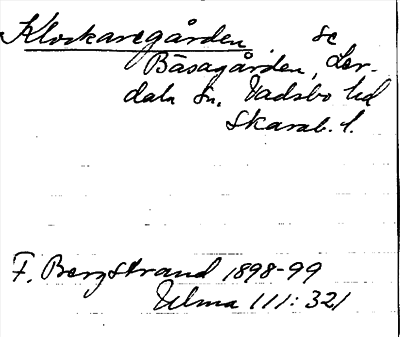 Klockaregården se
Båsagården, Ler-
dala sn. Vadsbo hd
Skarab. l.
F. Bergstrand 1898-99
Ulma 111:321